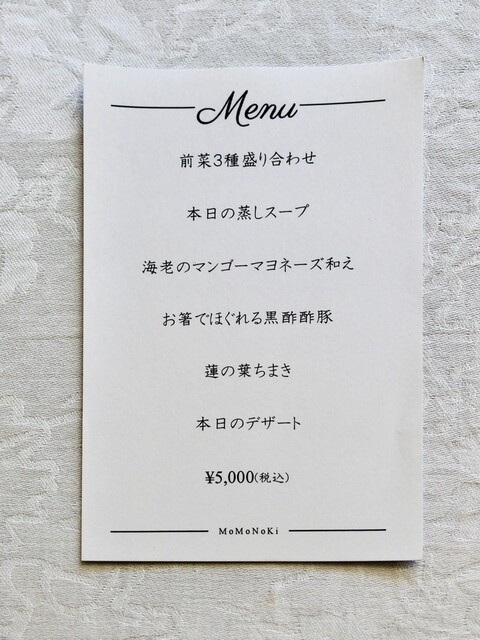 Menu
前菜3種盛り合わせ
本日の蒸しスープ
海老のマンゴーマヨネーズ和え
お箸でほぐれる黒酢酢豚
蓮の葉ちまき
本日のデザート
¥5,000(税込)
MoMoNoKi